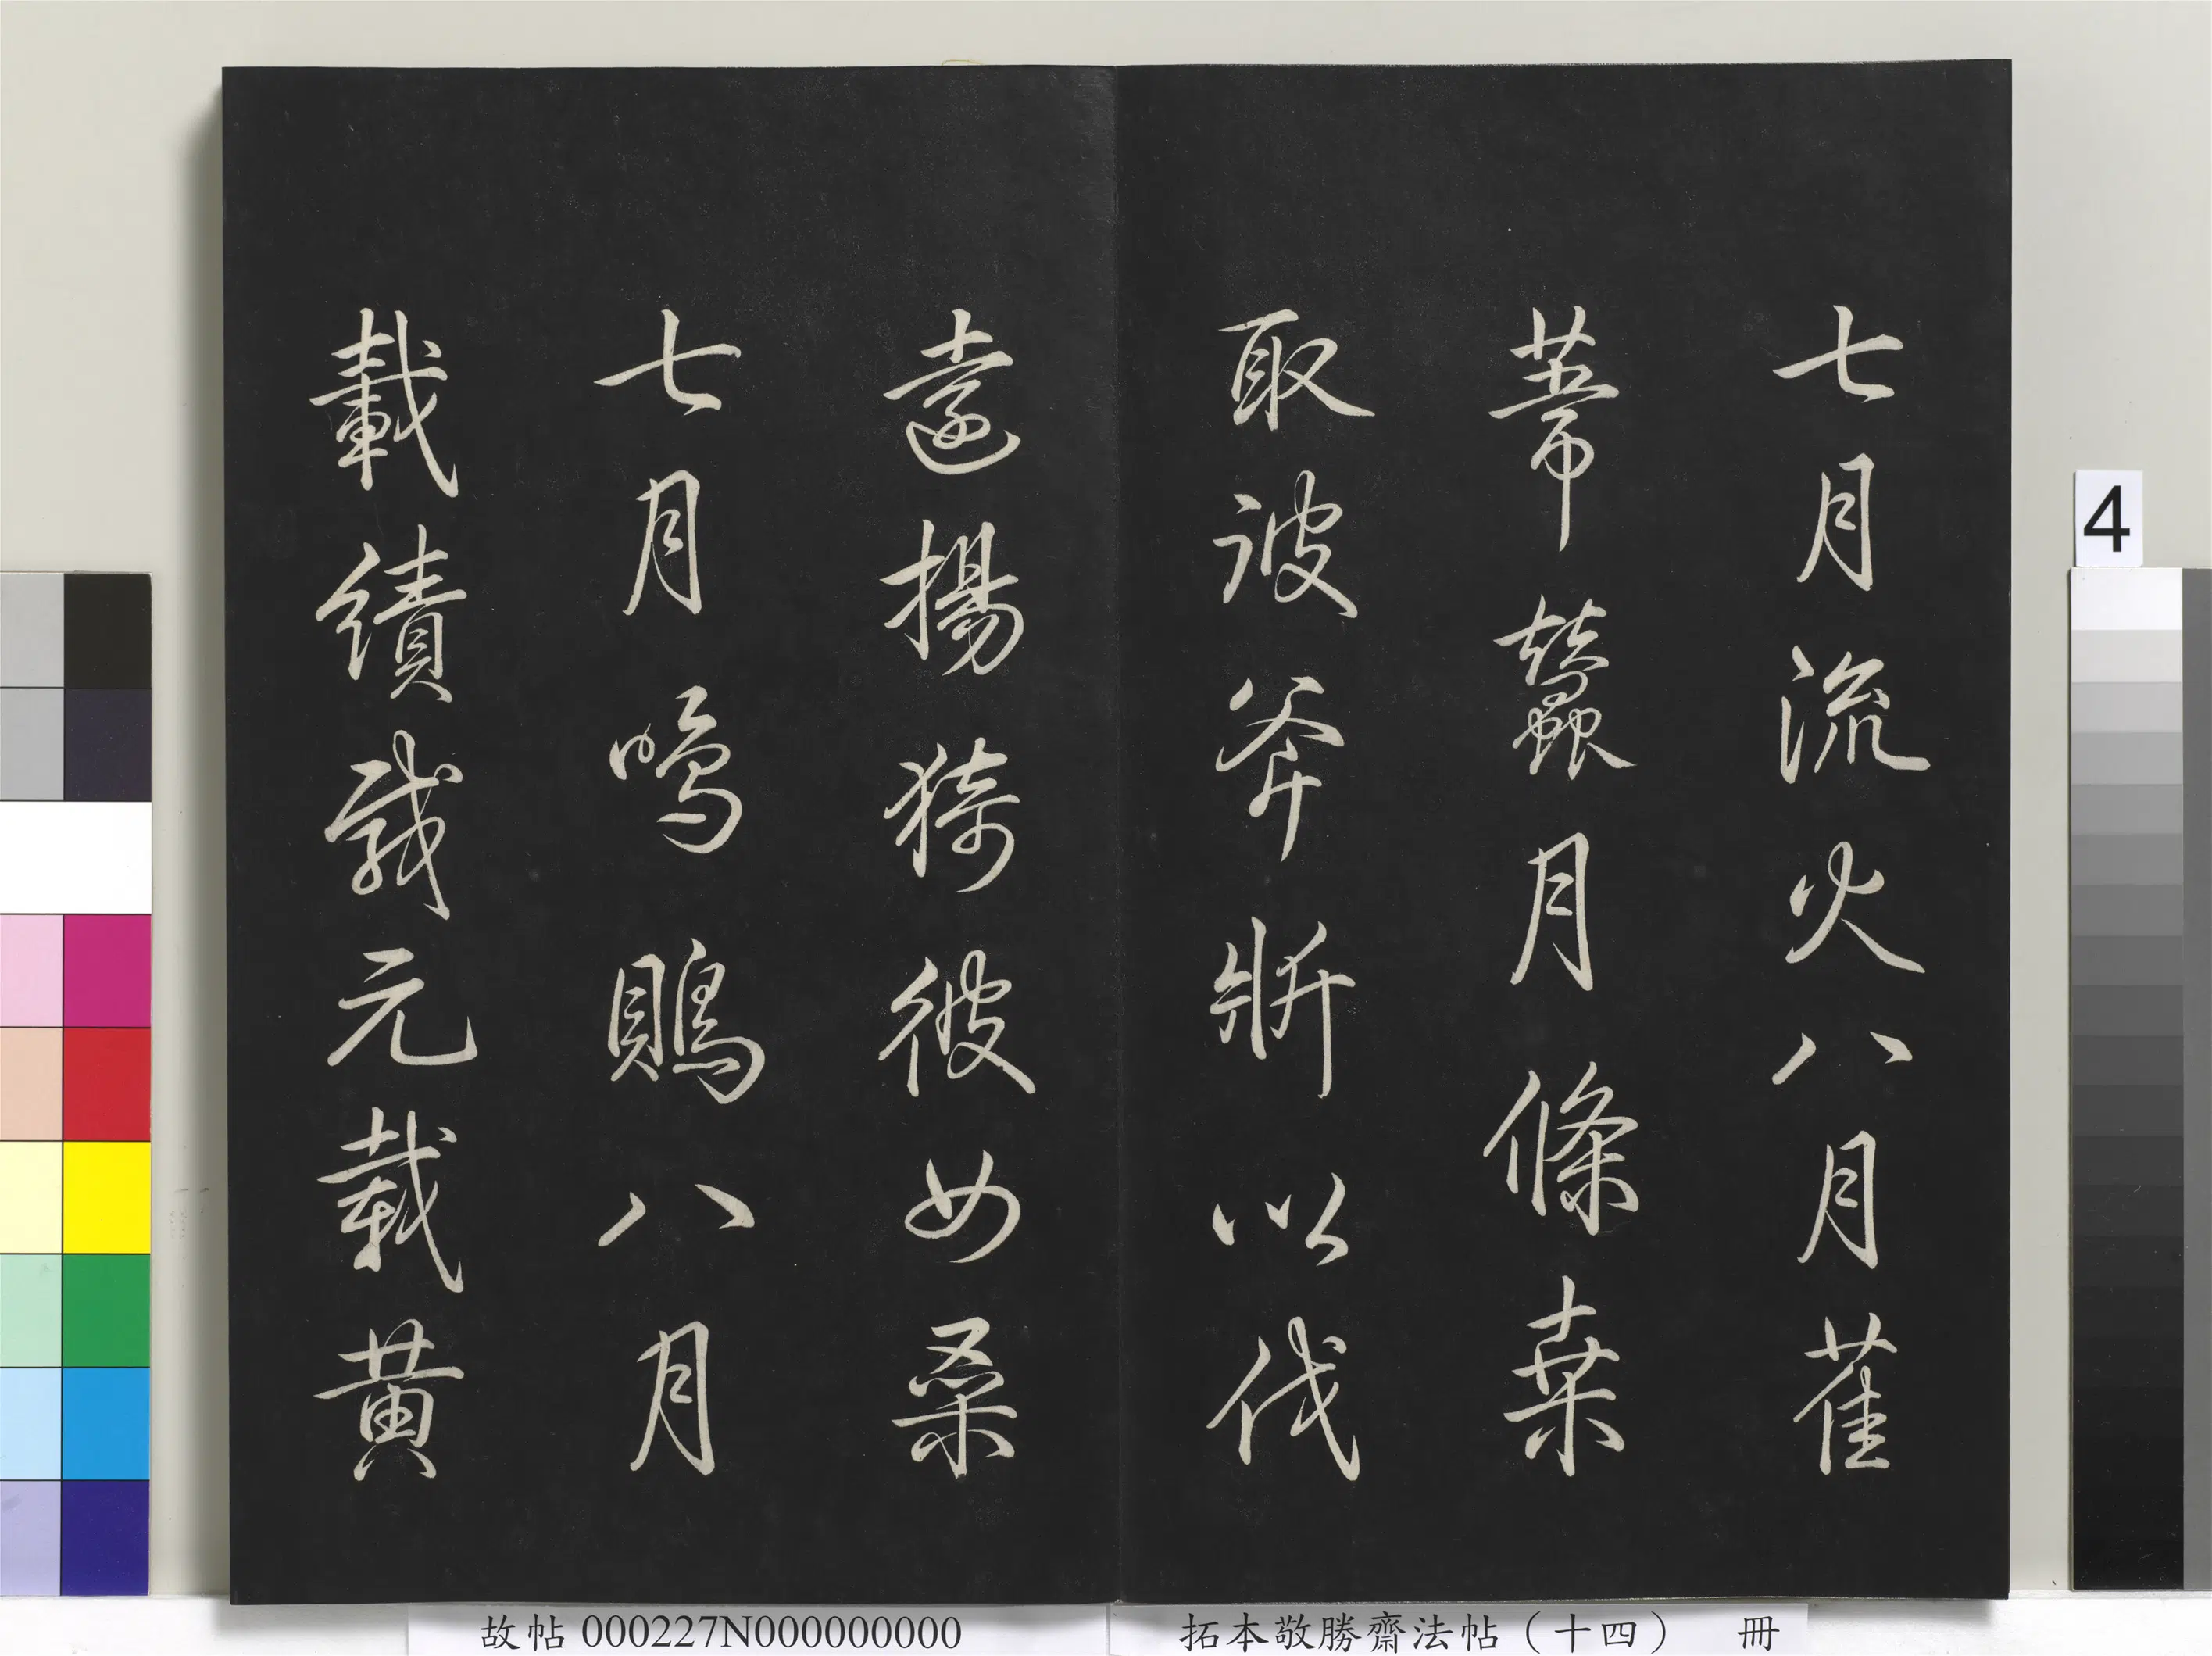 七月流火八月萑
葦蠶月條桑
取彼斧斨以伐
遠揚猗彼女桑
七月鳴鵙八月
載績載元載黃
4
故帖000227N000000000
拓本敬勝齋法帖（十四） 冊